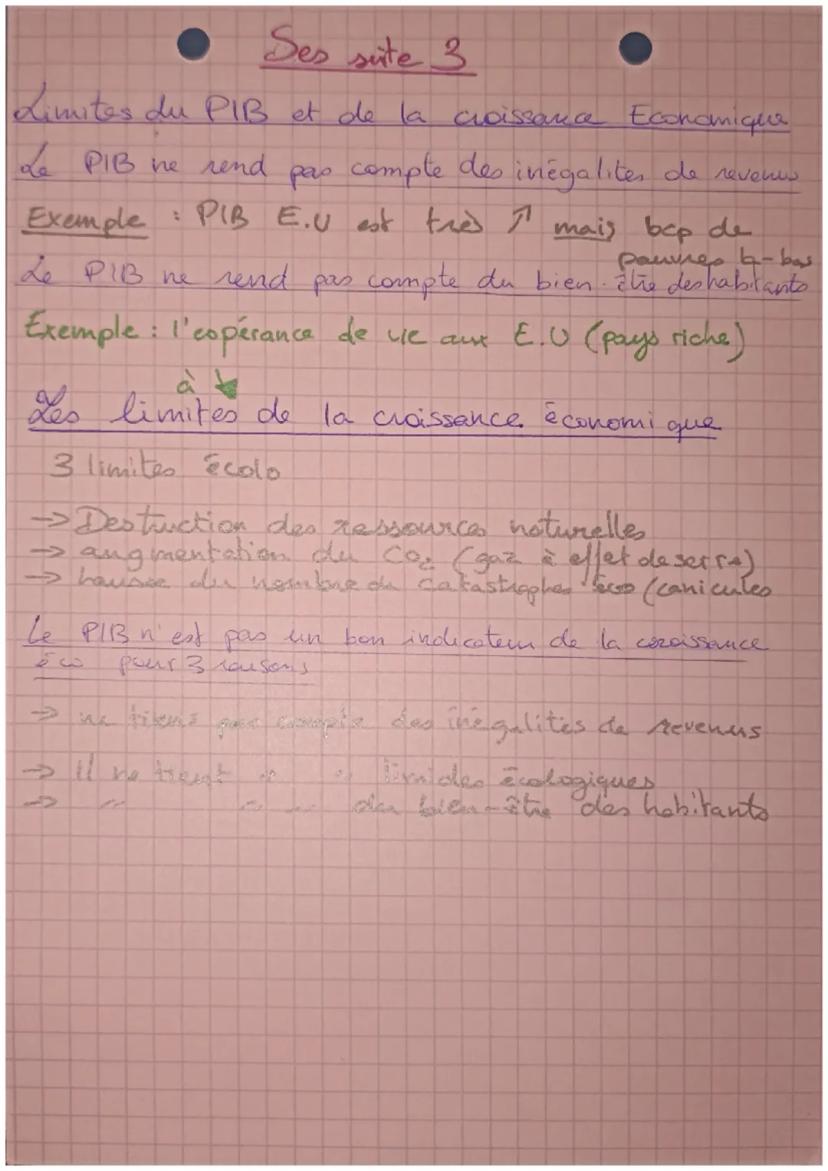 Ses suite 3
Limites du PIB et de la croissance Economique
Le PIB ne rend pas compte des inégalités de revenus
Exemple : PIB E.U est très ↗ mais bcp de
pauvres là-bas
Le PIB ne rend pas compte du bien-être des habitants
Exemple : l'espérance de vie aux E.U (pays riche)
à ↘
Les limites de la croissance économique
3 limites écolo
→ Destruction des ressources naturelles
→ augmentation du CO₂ (gaz à effet de serre)
→ hausse du nombre de catastrophes (canicules
Le PIB n'est pas un bon indicateur de la croissance
éco pour 3 raisons
→ ne tiens pas compte des inégalités de revenus
→ Il ne tient " " limides écologiques
→ " " " du bien-être des habitants